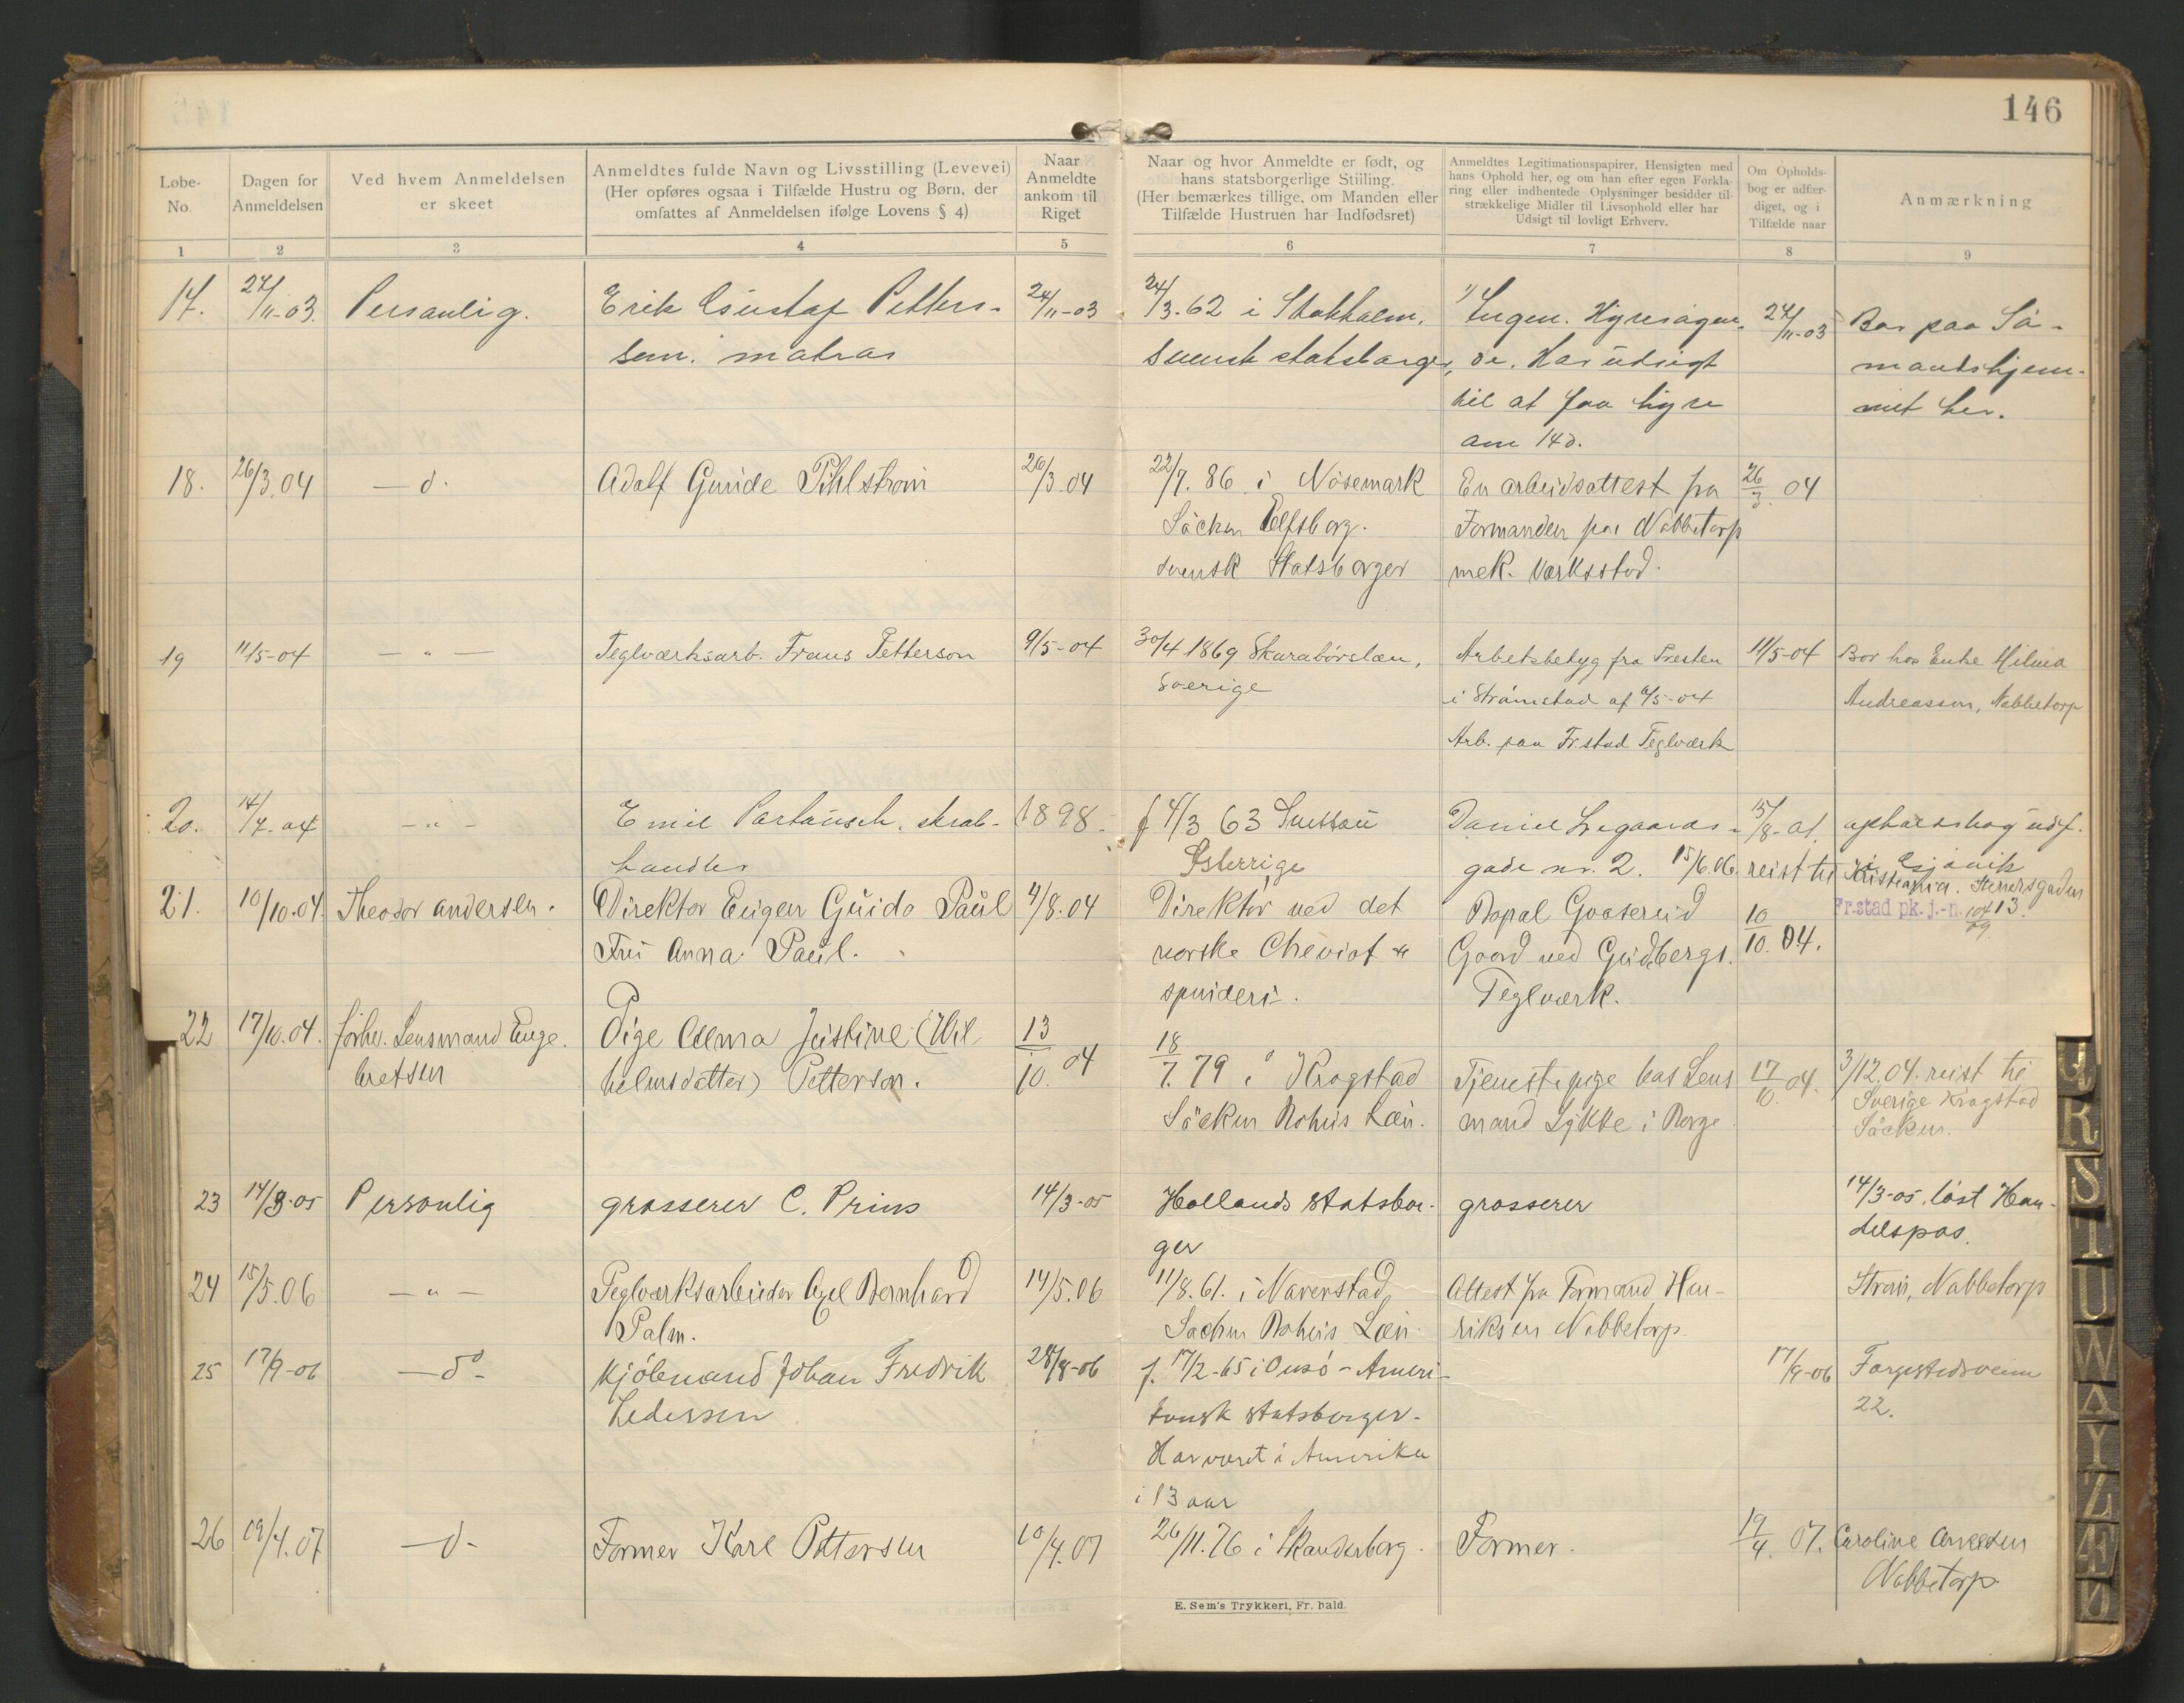 146
Løbe-No.
Dagen for Anmeldelsen
Ved hvem Anmeldelsen er skeet
Anmeldtes fulde Navn og Livsstilling (Levevei)
(Her opføres ogsaa i Tilfælde Hustru og Børn, der
omfattes af Anmeldelsen ifølge Lovens § 4)
Naar Anmeldte ankom til Riget
Naar og hvor Anmeldte er født, og
hans statsborgerlige Stiiling.
(Her bemærkes tillige, om Manden eller
Tilfælde Hustruen har Indfødsret)
Anmeldtes Legitimationspapirer, Hensigten med
hans Ophold her, og om han efter egen Forkla-
ring eller indhentede Oplysninger besidder til-
strækkelige Midler til Livsophold eller har
Udsigt til lovligt Erhverv.
Om Opholds-
bog er udfær-
diget, og i
Tilfælde naar
Anmærkning
1 2 3 4 5 6 7 8 9
17. 24/11-03. Personlig. Erik Gustaf Petters- 24/11-03 24/3-62 i Stokholm, Ingen. Hyresøgen- 24/11-03 Bor paa Sø-
sen. matros svensk statsborger, de. Har udsigt mandshjem-
til at faa hyre met her.
om 14 d.
18. 26/3.04 — d. Adolf Gunde Pihlstrøm 26/3.04 22/7.86 i Nösemark En arbeidsattest fra 26/3. 04
Söcken Elfsborg. Formanden paa Nabbetorp
svensk Statsborger mek. Værksted.
19 11/5-04 — " — Teglværksarb. Frans Petterson 9/5-04 30/4 1869 Skarabörslæn, Arbetsbetyg fra Presten 11/5-04 Bor hos Enke Hilma
Sverige i Strömstad af 6/5-04 Andreassen, Nabbetorp
Arb. paa Fr.stad Teglværk
20. 14/7.04 — " — Emil , skrab- 1898. f 4/3 63 Daniel Legaards- 15/8-01. opholdsbog udf.
handler Østerrige gade nr. 2. 15/6.06. reist til Kristiania. Stenersgaden
i Gjøvik
21. 10/10.04. Theodor Andersen. Direktør Eugen Guido Paul 4/8.04 Direktør ved det Nopal Gaasereid 10/10.04. Fr.stad pk. j.-n. 13.
Fru Anna Paul. norske Cheviot " Gaard ved Gudbergs.
spinderi. Teglværk.
22 17/10.04. forhv. Lensmand Enge- Pige Alma Justine (Wil- 13/10.04 18/7.79 i Krogstad Tjenestepige hos Lens 17/10.04. 3/12.04. reist til
bretsen helmsdatter) Petterson. Söcken Bohus Læn. mand Lykke i Borge Sverige Krogstad
Söcken.
23 14/3-05 Personlig grosserer C. Prins 14/3-05 Hollands statsbor- grosserer 14/3-05. løst Han-
ger delspas.
24 15/5.06 — " — Teglværksarbeider Axel Bernhard 14/5.06 11/8.61. i Naverstad, Attest fra Formand Hen- Strøm, Nabbetorp
Palm. Sochen Bohus Læn. riksen Nabbetorp.
25 17/9-06 — do - Kjøbmand Johan Fredrik 28/8-06 f. 17/2-65 i Onsø - Ameri- 17/9-06 Færgestedsveien
Pedersen kansk statsborger. 22.
Har været i Amerika
i 13 aar
26 19/4.07 — d - Former Karl Pettersen 10/4.07 26/11.76 i Skanderborg. Former. 19/4. 07. Caroline
Nabbetorp
E. Sem's Trykkeri, Fr. hald.
Q
R
S
T
U
W
A
Y
Z
Æ
Ø